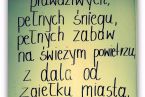 prawdziwych,
pełnych śniegu,
pełnych zabaw
na świeżym powietrzu,
z dala od
zgiełku miasta,